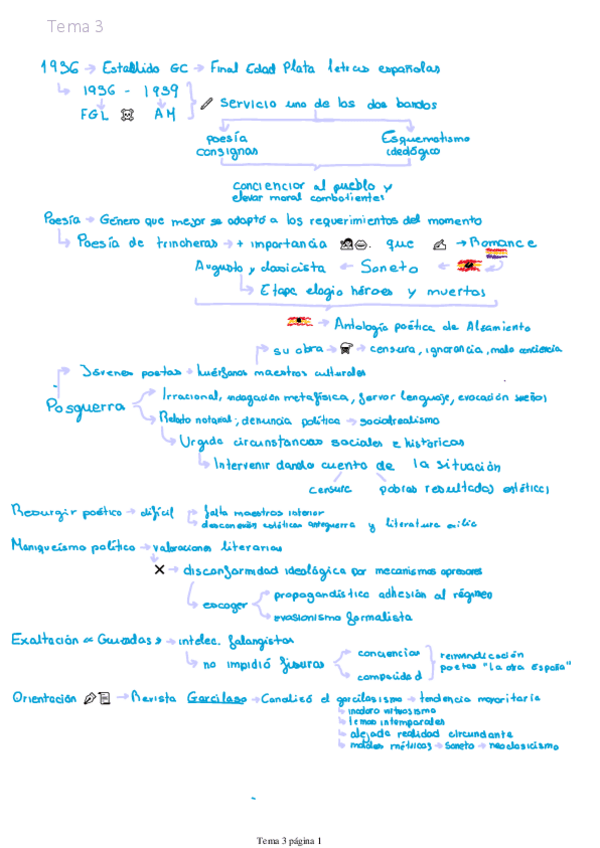 Tema 3
1936 → Estallido GC → Final Edad Plata letras españolas
1936 - 1939 Servicio uno de los dos bandos
FGL AM
poesía consignas Esquematismo ideológico
concienciar al pueblo y
elevar moral combatientes
Poesía → Género que mejor se adaptó a los requerimientos del momento
Poesía de trincheras → + importancia que → Romance
Augusto y clasicista ← Soneto ←
Etapa elogio héroes y muertos
→ Antología poética de Alzamiento
su obra → → censura, ignorancia, mala conciencia
Jóvenes poetas → huérfanos maestros culturales
Posguerra
Irracional, indagación metafísica, fervor lenguaje, evocación sueños
Relato notarial, denuncia política → socialrealismo
Urgida circunstancias sociales e históricas
Intervenir dando cuenta de la situación
censura pobres resultados estéticos
Resurgir poético → difícil falta maestros interior
desconexión estéticas anteguerra y literatura exilio
Maniqueísmo político → valoraciones literarias
→ disconformidad ideológica por mecanismos opresores
escoger propagandística adhesión al régimen
evasionismo formalista
Exaltación "Cruzadas" → intelec. falangistas
no impidió fisuras conciencias
complicidad
reivindicación
poetas "la otra España"
Orientación → Revista Garcilaso → Canalizó el garcilasismo → tendencia mayoritaria
inodoro virtuosismo
temas intemporales
alejada realidad circundante
moldes métricos → soneto → neoclasicismo
Tema 3 página 1